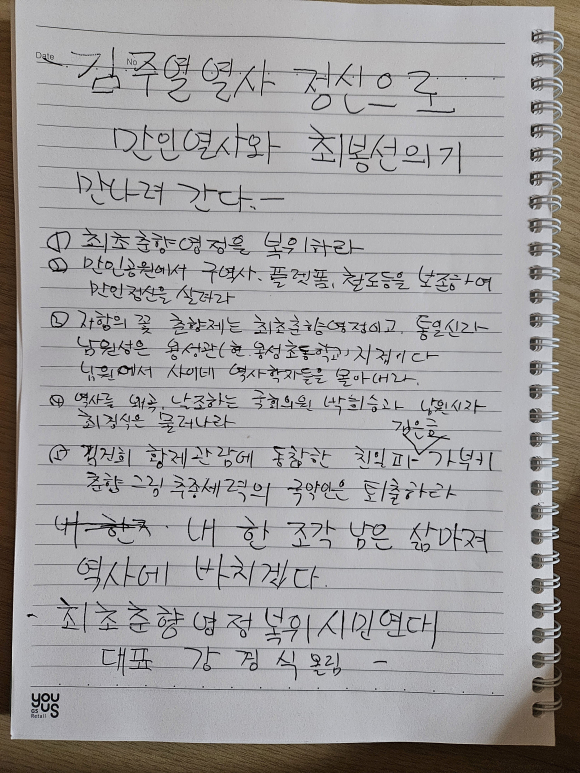 Date
No
김주열열사 정신으로
만인열사와 최봉선의기
만나러 간다.-
① 최초춘향영정을 복위하라
② 만인공원에서 구역사. 플렛폼, 철로등을 보존하여
만인정신을 살려라
③ 저항의 꽃 춘향제는 최초춘향영정이고, 통일신라
남원성은 용성관(현.용성초등학교)지점이다
남원에서 사이비 역사학자들을 몰아내라.
④ 역사를 왜곡, 날조하는 국회의원 박희승과 남원시장
최경식은 물러나라
⑤ 김건희 황제관람에 동참한 친일파 가부키
춘향그림 추종세력의 국악인은 퇴출하라
내 한 조각 남은 삶마져
역사에 바치겠다.
- 최초춘향영정복위시민연대
대표 강경식 올림 -
you
as
us
Retail